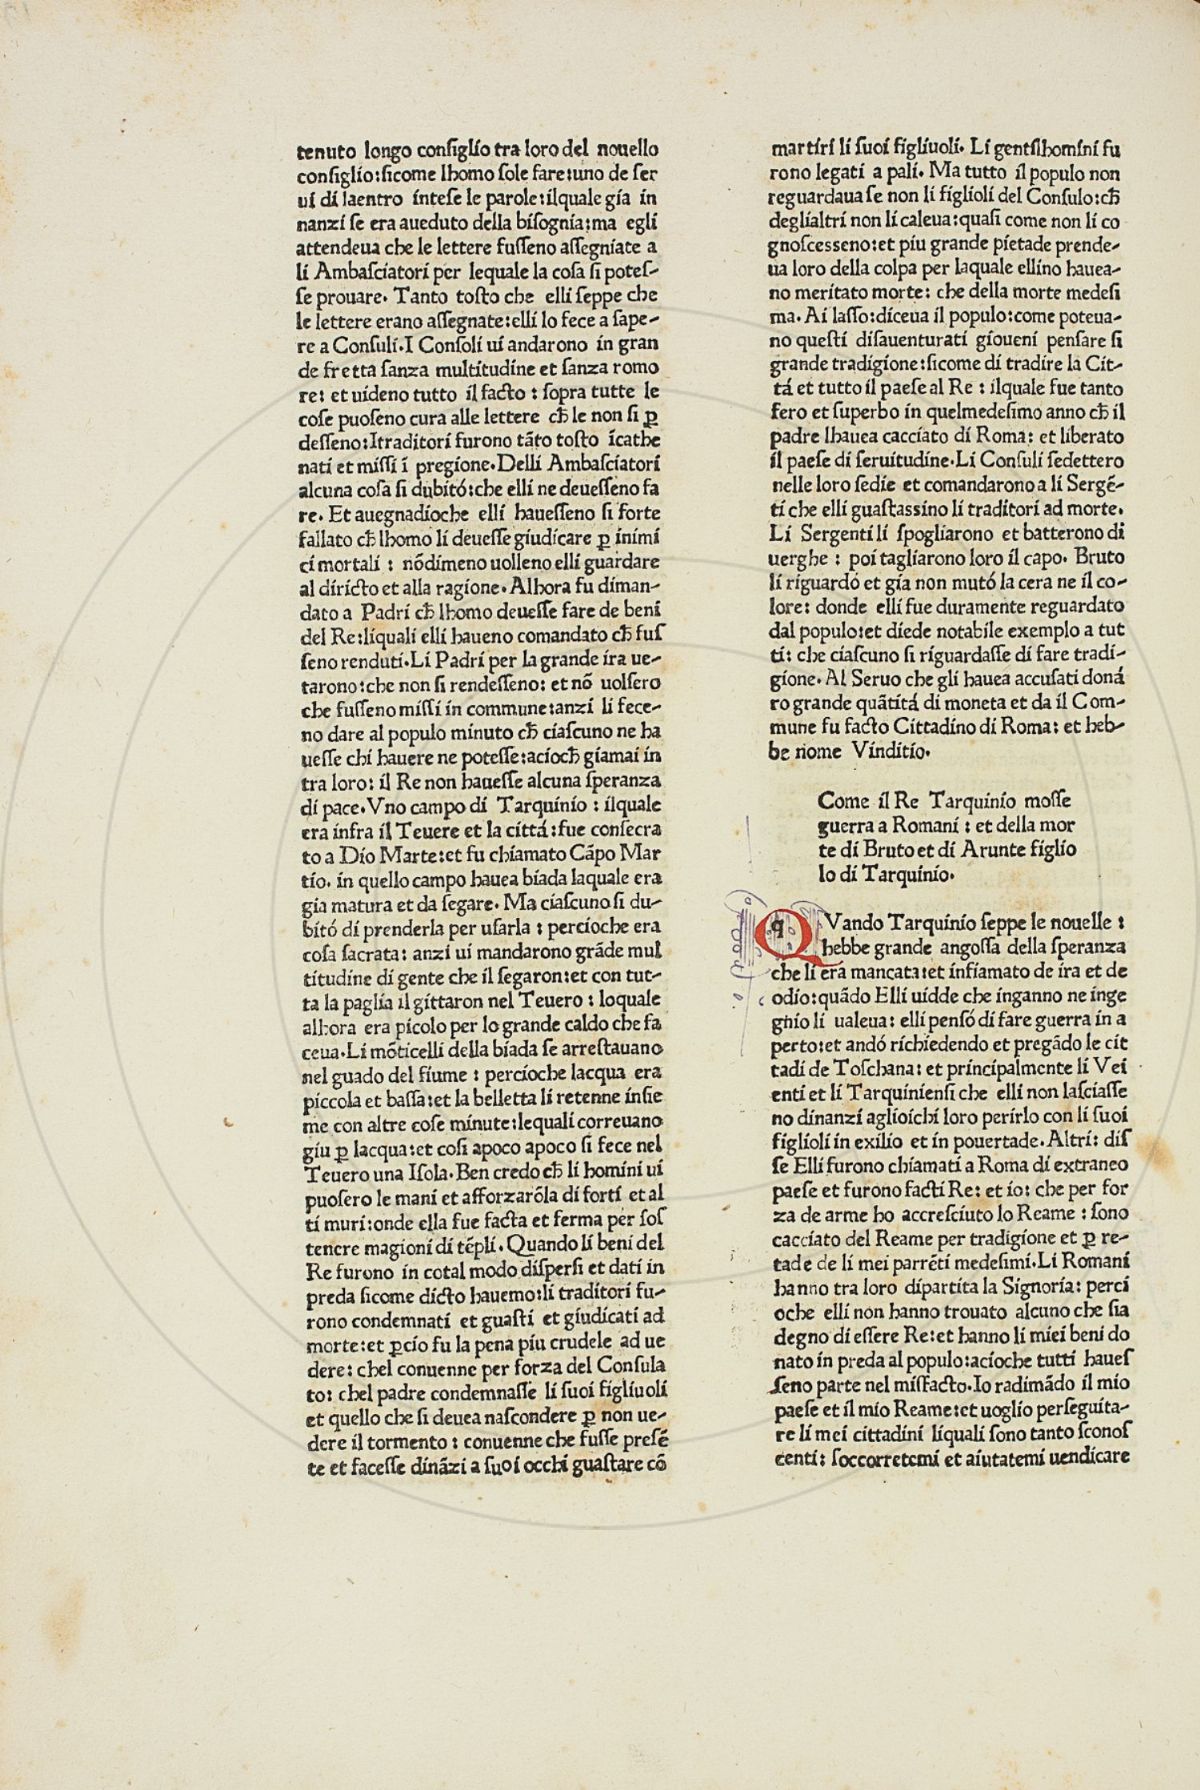 tenuto longo consiglio tra loro del nouello
consiglio:sicome lhomo sole fare:uno de ser
ui di laentro intese le parole:ilquale gia in
nanzi se era aueduto della bisognia:ma egli
attendeua che le lettere fusseno assegniate a
li Ambasciatori per lequale la cosa si potes-
se prouare. Tanto tosto che elli seppe che
le lettere erano assegnate:elli lo fece a sape-
re a Consuli.I Consoli ui andarono in gran
de fretta sanza multitudine et sanza romo
re: et uideno tutto il facto : sopra tutte le
cose puoseno cura alle lettere cħ le non si ꝑ
desseno:Itraditori furono tãto tosto ĩcathe
nati et missi ĩ pregione.Delli Ambasciatori
alcuna cosa si dubitó:che elli ne deuesseno fa
re. Et auegnadioche elli hauesseno si forte
fallato cħ lhomo li deuesse giudicare ꝑ inimi
ci mortali : nõdimeno uolleno elli guardare
al diricto et alla ragione.Alhora fu diman-
dato a Padri cħ lhomo deuesse fare de beni
del Re:liquali elli haueno comandato cħ fus
seno renduti.Li Padri per la grande ira ue-
tarono:che non si rendesseno: et nõ uolsero
che fusseno missi in commune:anzi li fece-
no dare al populo minuto cħ ciascuno ne ha
uesse chi hauere ne potesse:aciocħ giamai in
tra loro: il Re non hauesse alcuna speranza
di pace.Vno campo di Tarquinio : ilquale
era infra il Teuere et la cittá:fue consecra
to a Dio Marte:et fu chiamato Cãpo Mar
tio. in quello campo hauea biada laquale era
gia matura et da segare. Ma ciascuno si du-
bitó di prenderla per usarla : percioche era
cosa sacrata: anzi ui mandarono grãde mul
titudine di gente che il segaron:et con tut-
ta la paglia il gittaron nel Teuero : loquale
alhora era picolo per lo grande caldo che fa
ceua.Li mõticelli della biada se arrestauano
nel guado del fiume : percioche lacqua era
piccola et bassa:et la belletta li retenne insie
me con altre cose minute:lequali correuano
giu ꝑ lacqua:et cosi apoco apoco si fece nel
Teuero una Isola.Ben credo cħ li homini ui
puosero le mani et afforzarõla di forti et al
ti muri:onde ella fue facta et ferma per sos
tenere magioni di tẽpli.Quando li beni del
Re furono in cotal modo dispersi et dati in
preda sicome dicto hauemo:li traditori fu-
rono condemnati et guasti et giudicati ad
morte:et ꝑcio fu la pena piu crudele ad ue
dere: chel conuenne per forza del Consula
to: chel padre condemnasse li suoi figliuoli
et quello che si deuea nascondere ꝑ non ue-
dere il tormento : conuenne che fusse presẽ
te et facesse dinãzi a suoi occhi guastare cõ
martiri li suoi figliuoli. Li gentilhomini fu
rono legati a pali. Ma tutto il populo non
reguardaua se non li figlioli del Consulo:cħ
deglialtri non li caleua:quasi come non li co
gnoscesseno:et piu grande pietade prende-
ua loro della colpa per laquale ellino hauea-
no meritato morte: che della morte medesi
ma. Ai lasso:diceua il populo:come poteua-
no questi disauenturati gioueni pensare si
grande tradigione:sicome di tradire la Cit-
tá et tutto il paese al Re : ilquale fue tanto
fero et superbo in quelmedesimo anno cħ il
padre lhauea cacciato di Roma: et liberato
il paese di seruitudine.Li Consuli sedettero
nelle loro sedie et comandarono a li Sergẽ-
ti che elli guastassino li traditori ad morte.
Li Sergenti li spogliarono et batterono di
uerghe : poi tagliarono loro il capo. Bruto
li riguardó et gia non mutó la cera ne il co-
lore: donde elli fue duramente reguardato
dal populo:et diede notabile exemplo a tut
ti: che ciascuno si riguardasse di fare tradi-
gione. Al Seruo che gli hauea accusati doná
ro grande quãtitá di moneta et da il Com-
mune fu facto Cittadino di Roma: et heb-
be nome Vinditio.
Come il Re Tarquinio mosse
guerra a Romani : et della mor
te di Bruto et di Arunte figlio
lo di Tarquinio.
QVando Tarquinio seppe le nouelle :
hebbe grande angossa della speranza
che li era mancata:et infiamato de ira et de
odio:quãdo Elli uidde che inganno ne inge
gnio li ualeua: elli pensó di fare guerra in a
perto:et andó richiedendo et pregãdo le cit
tadi de Toschana: et principalmente li Vei
enti et li Tarquiniensi che elli non lasciasse
no dinanzi aglioichi loro perirlo con li suoi
figlioli in exilio et in pouertade.Altri: dis
se Elli furono chiamati a Roma di extraneo
paese et furono facti Re: et io: che per for
za de arme ho accresciuto lo Reame : sono
cacciato del Reame per tradigione et ꝑ re-
tade de li mei parrẽti medesimi.Li Romani
hanno tra loro dipartita la Signoria: perci
oche elli non hanno trouato alcuno che sia
degno di essere Re:et hanno li miei beni do
nato in preda al populo:acioche tutti haues
seno parte nel misfacto.Io radimãdo il mio
paese et il mio Reame:et uoglio perseguita-
re li mei cittadini liquali sono tanto sconos
centi: soccorretemi et aiutatemi uendicare